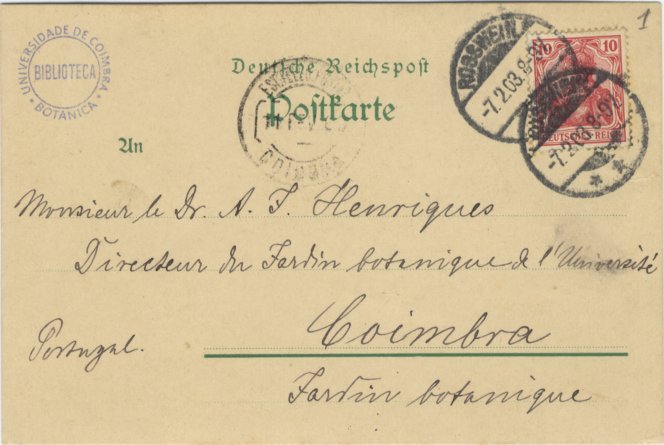 1
UNIVERSIDADE DE COIMBRA
BIBLIOTECA
BOTÂNICA
Deutsche Reichspost
Postkarte
ROSSWEIN
-7.2.03.8-9N.
10 10
DEUTSCHES REICH
-7.2.03.8-9N.
COIMBRA
An
Monsieur le Dr. A. J. Henriques
Directeur du Jardin botanique de l'Université
Coimbra
Portugal.
Jardin botanique